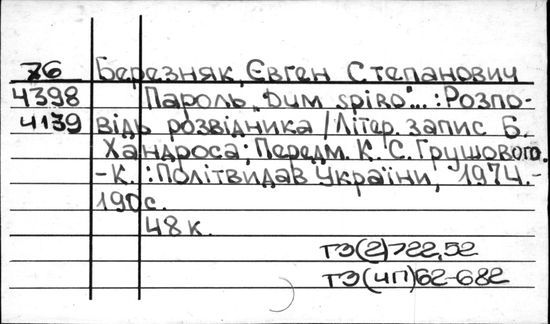 76 Березняк, Євген Степанович
4398 Пароль „Dum spiro"...: Розпо-
4139 відь розвідника / Літер. запис Б.
Хандроса; Передм. К. С. Грушового.
-К.: Політвидав України, 1974.-
190 с.
48 к.
ТЗ(2)722,52
ТЗ(4П)62-682